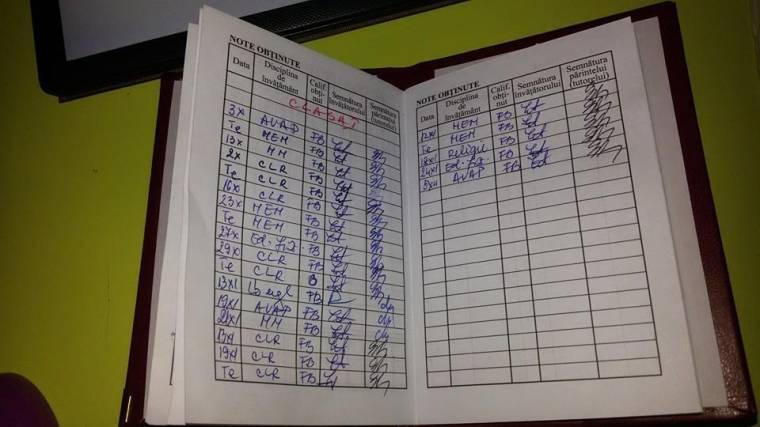 NOTE OBȚINUTE
Data Disciplina de învățământ Calif. obți- nut Semnătura învățătorului Semnătura părintelui (tutorelui)
CLASA I
3X AVAP FB
Te MEM FB
13X MM FB
2X CLR FB
Te CLR FB
16X CLR FB
23X MEM FB
Te MEM FB
27X Ed. fiz. FB
29X CLR FB
Te CLR B
13XI Lb engl FB
19XI AVAP FB
21XI MM FB
13XI CLR FB
19XI CLR FB
Te CLR FB
NOTE OBȚINUTE
Data Disciplina de învățământ Calif. obți- nut Semnătura învățătorului Semnătura părintelui (tutorelui)
12XI MEM FB
Te MEM FB
18XI Religie FB
24XI Ed. fiz FB
3XII AVAP FB